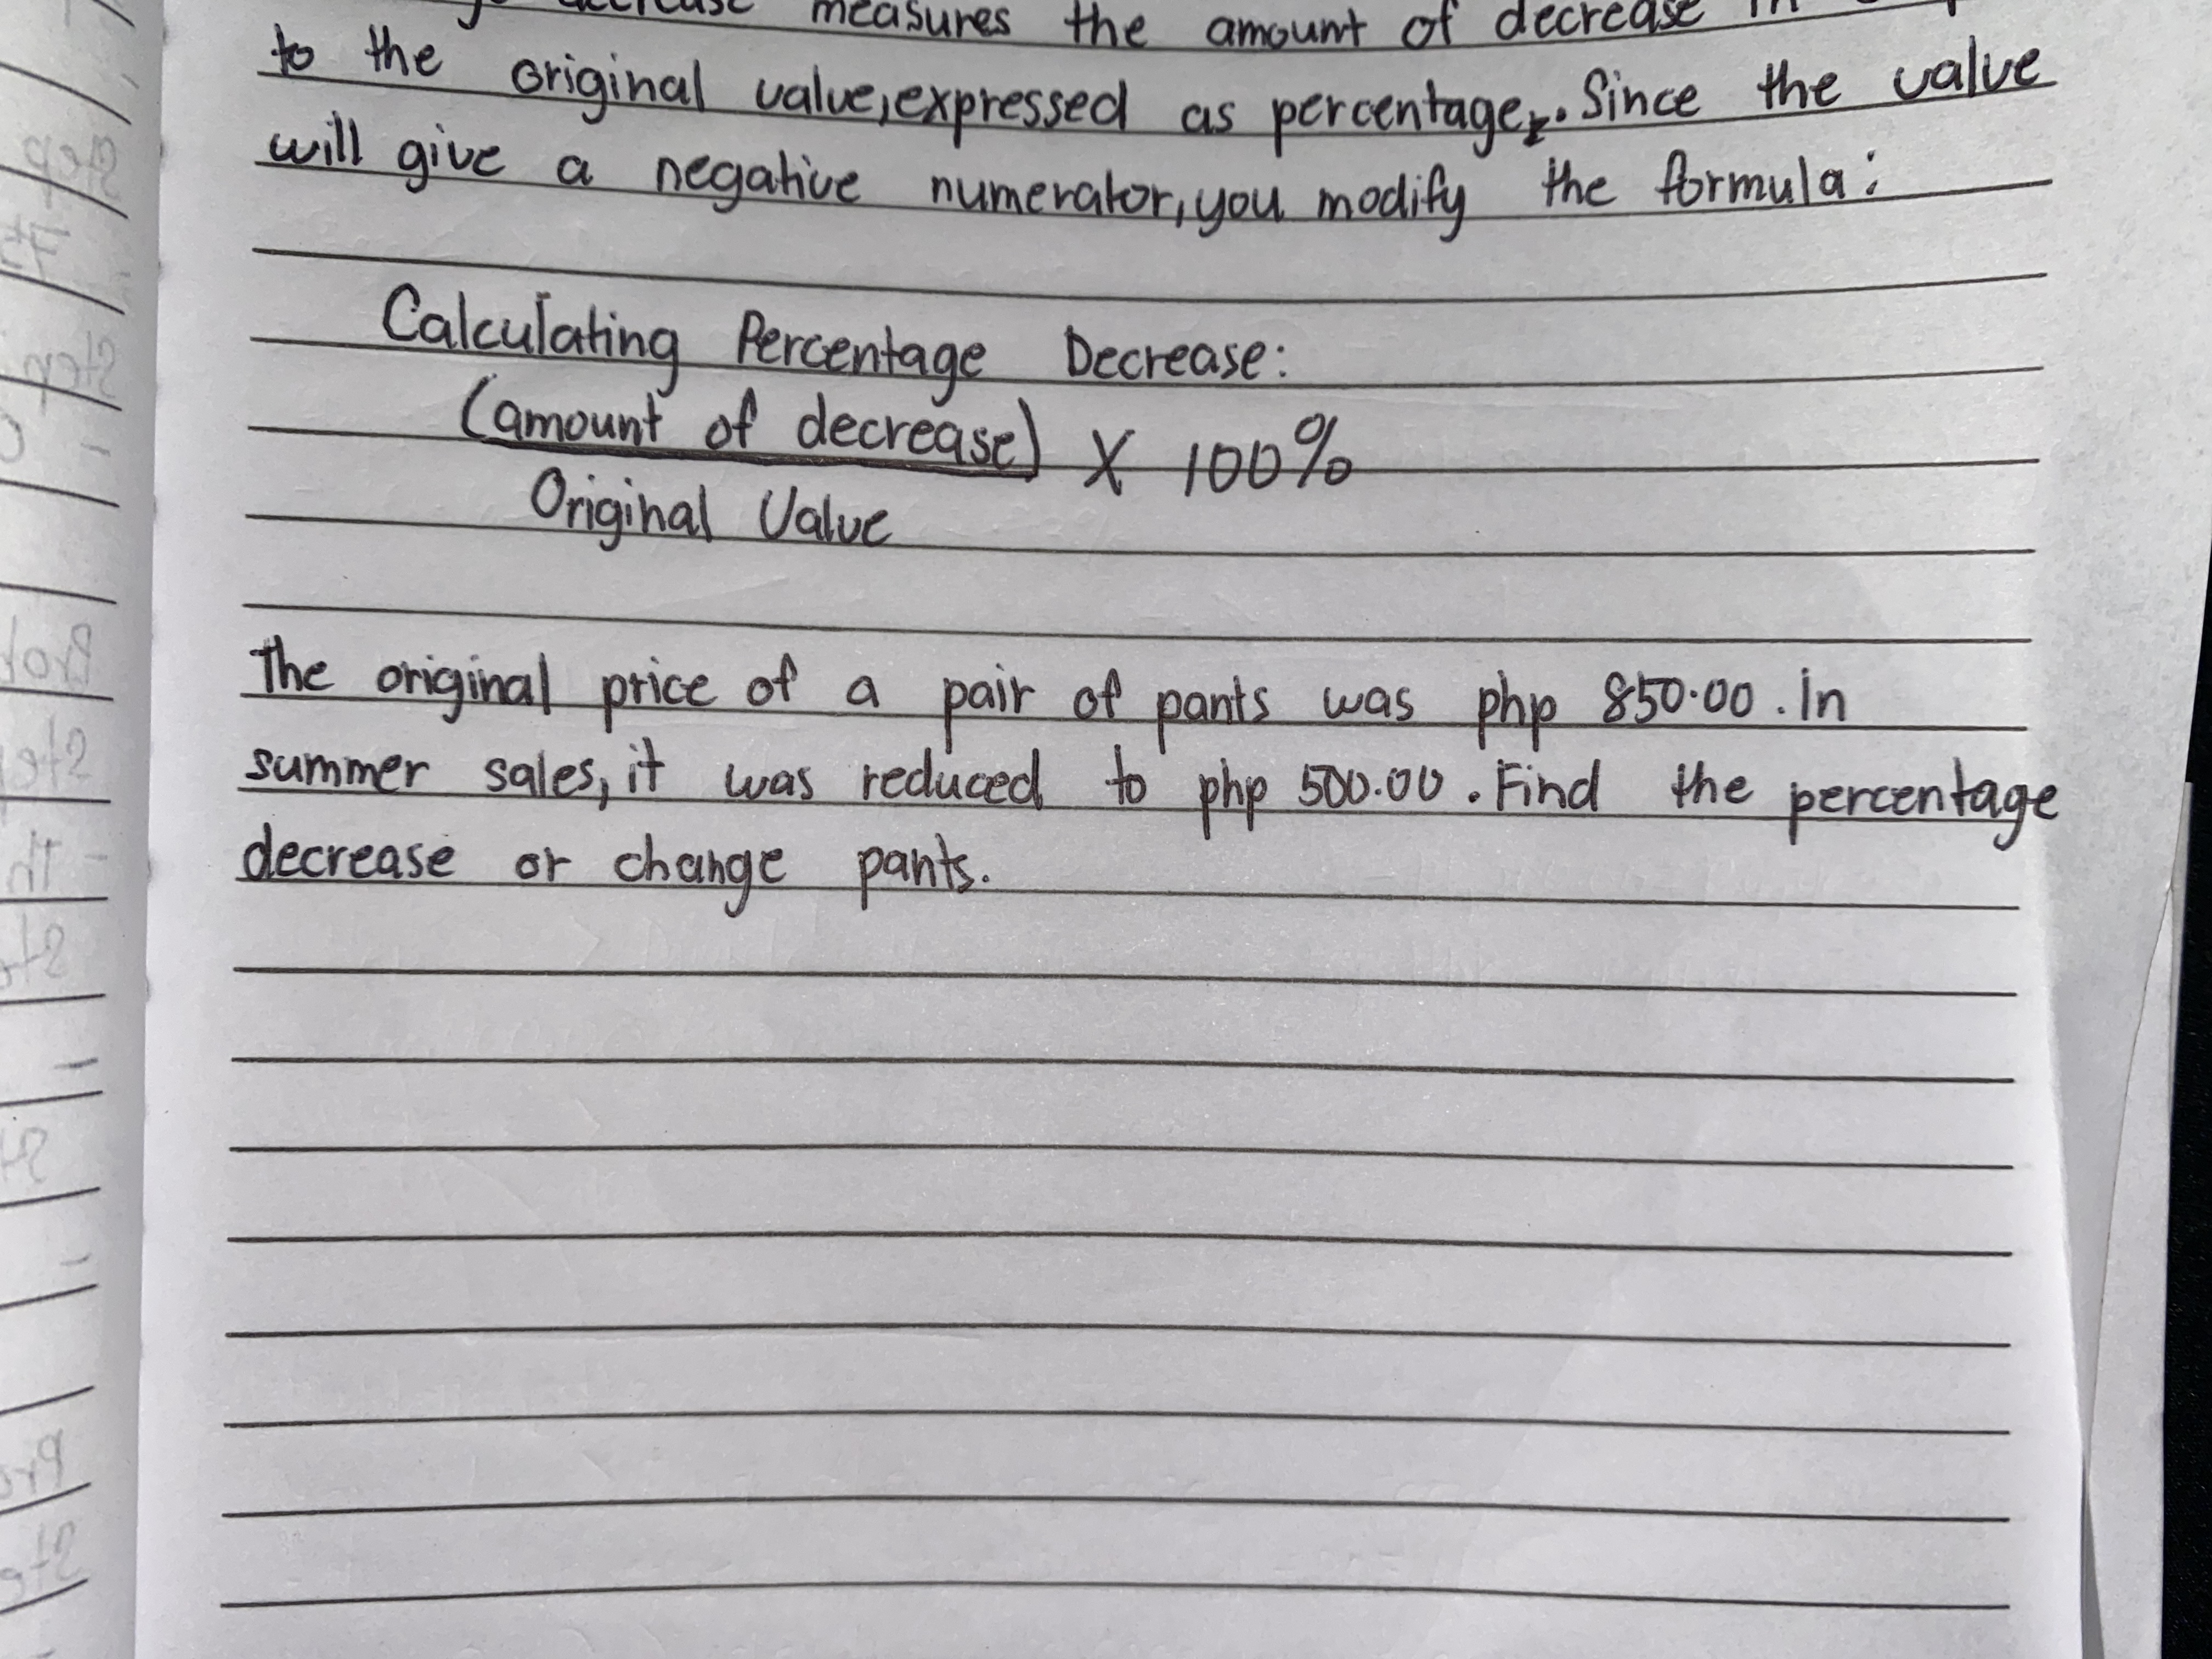 measures the amount of decrease in
to the original value, expressed as percentage. Since the value
will give a negative numerator, you modify the formula:
Calculating Percentage Decrease:
(amount of decrease) X 100%
Original Value
The original price of a pair of pants was php 850.00. In
summer sales, it was reduced to php 500.00. Find the percentage
decrease or change pants.